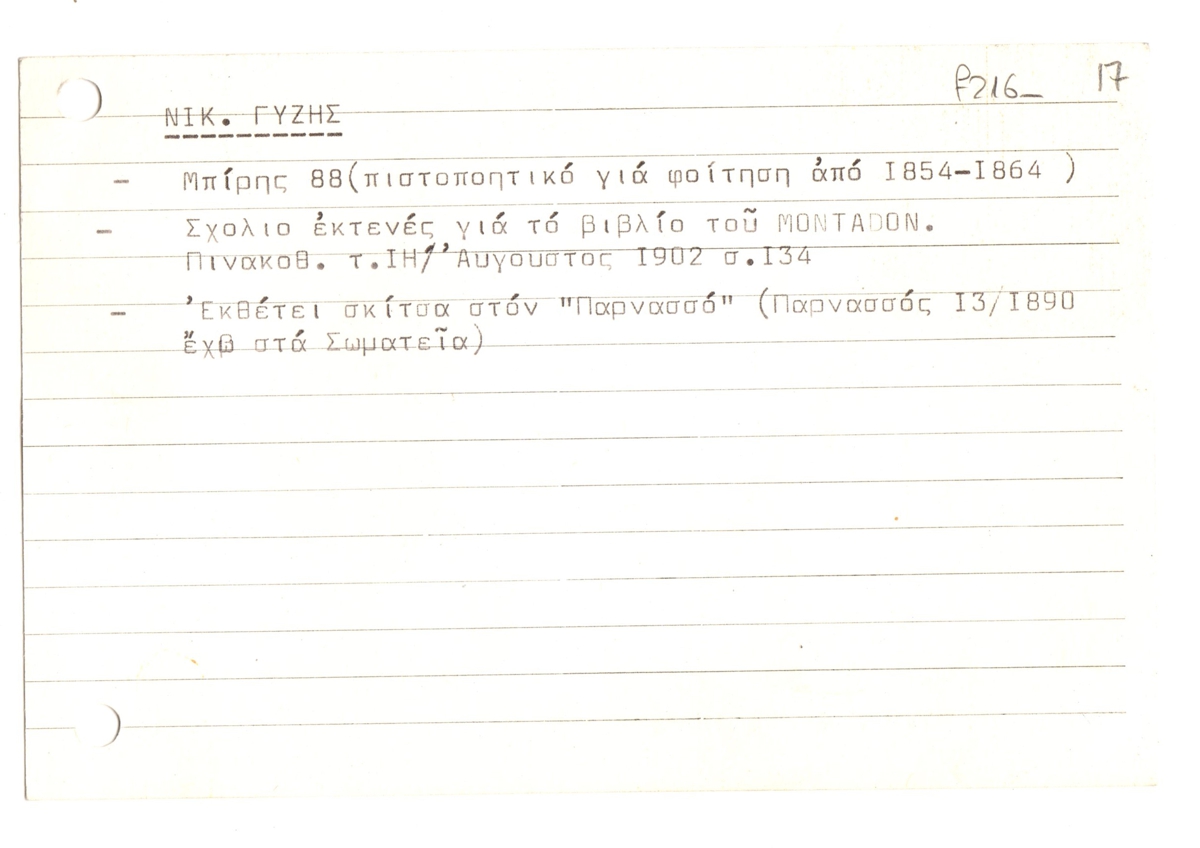 f216_ 17
ΝΙΚ. ΓΥΖΗΣ
- Μπίρης 88(πιστοποητικό γιά φοίτηση ἀπό I854-I864 )
- Σχολιο ἐκτενές γιά τό βιβλίο τοῦ MONTADON.
Πινακοθ. τ.ΙΗ/'Αυγουστος I902 σ.I34
- 'Εκθέτει σκίτσα στόν "Παρνασσό" (Παρνασσός I3/I890
ἔχω στά Σωματεῖα)